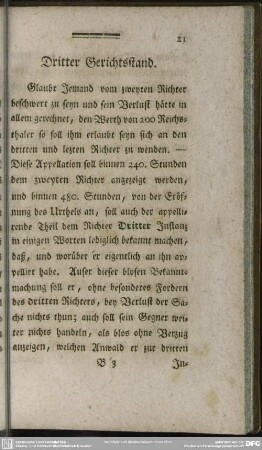 21
Dritter Gerichtsstand.
Glaubt Jemand vom zweyten Richter
beschwert zu seyn und sein Verlust hätte in
allem gerechnet, den Werth von 200 Reichs-
thaler so soll ihm erlaubt seyn sich an den
dritten und lezten Richter zu wenden. —
Diese Appellation soll binnen 240. Stunden
dem zweyten Richter angezeigt werden,
und binnen 480. Stunden, von der Eröf-
nung des Urthels an, soll auch der appelli-
rende Theil dem Richter Dritter Instanz
in einigen Worten lediglich bekannt machen,
daß, und worüber er eigentlich an ihn ap-
pellirt habe. Auser dieser blosen Bekannt-
machung soll er, ohne besonderes Fordern
des dritten Richters, bey Verlust der Sa-
che nichts thun; auch soll sein Gegner wei-
ter nichts handeln, als blos ohne Verzug
anzeigen, welchen Anwald er zur dritten
B 3
In-
DFG